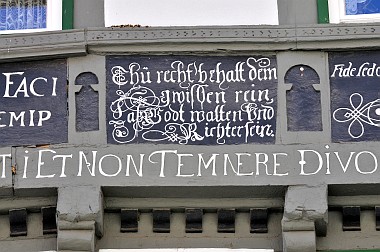 FACI
EMIP
Thü recht behalt dein
gwissen rein,
Laß Gott walten Und
Richter sein.
Fide sed
TI ET NON TEMNERE DIVO